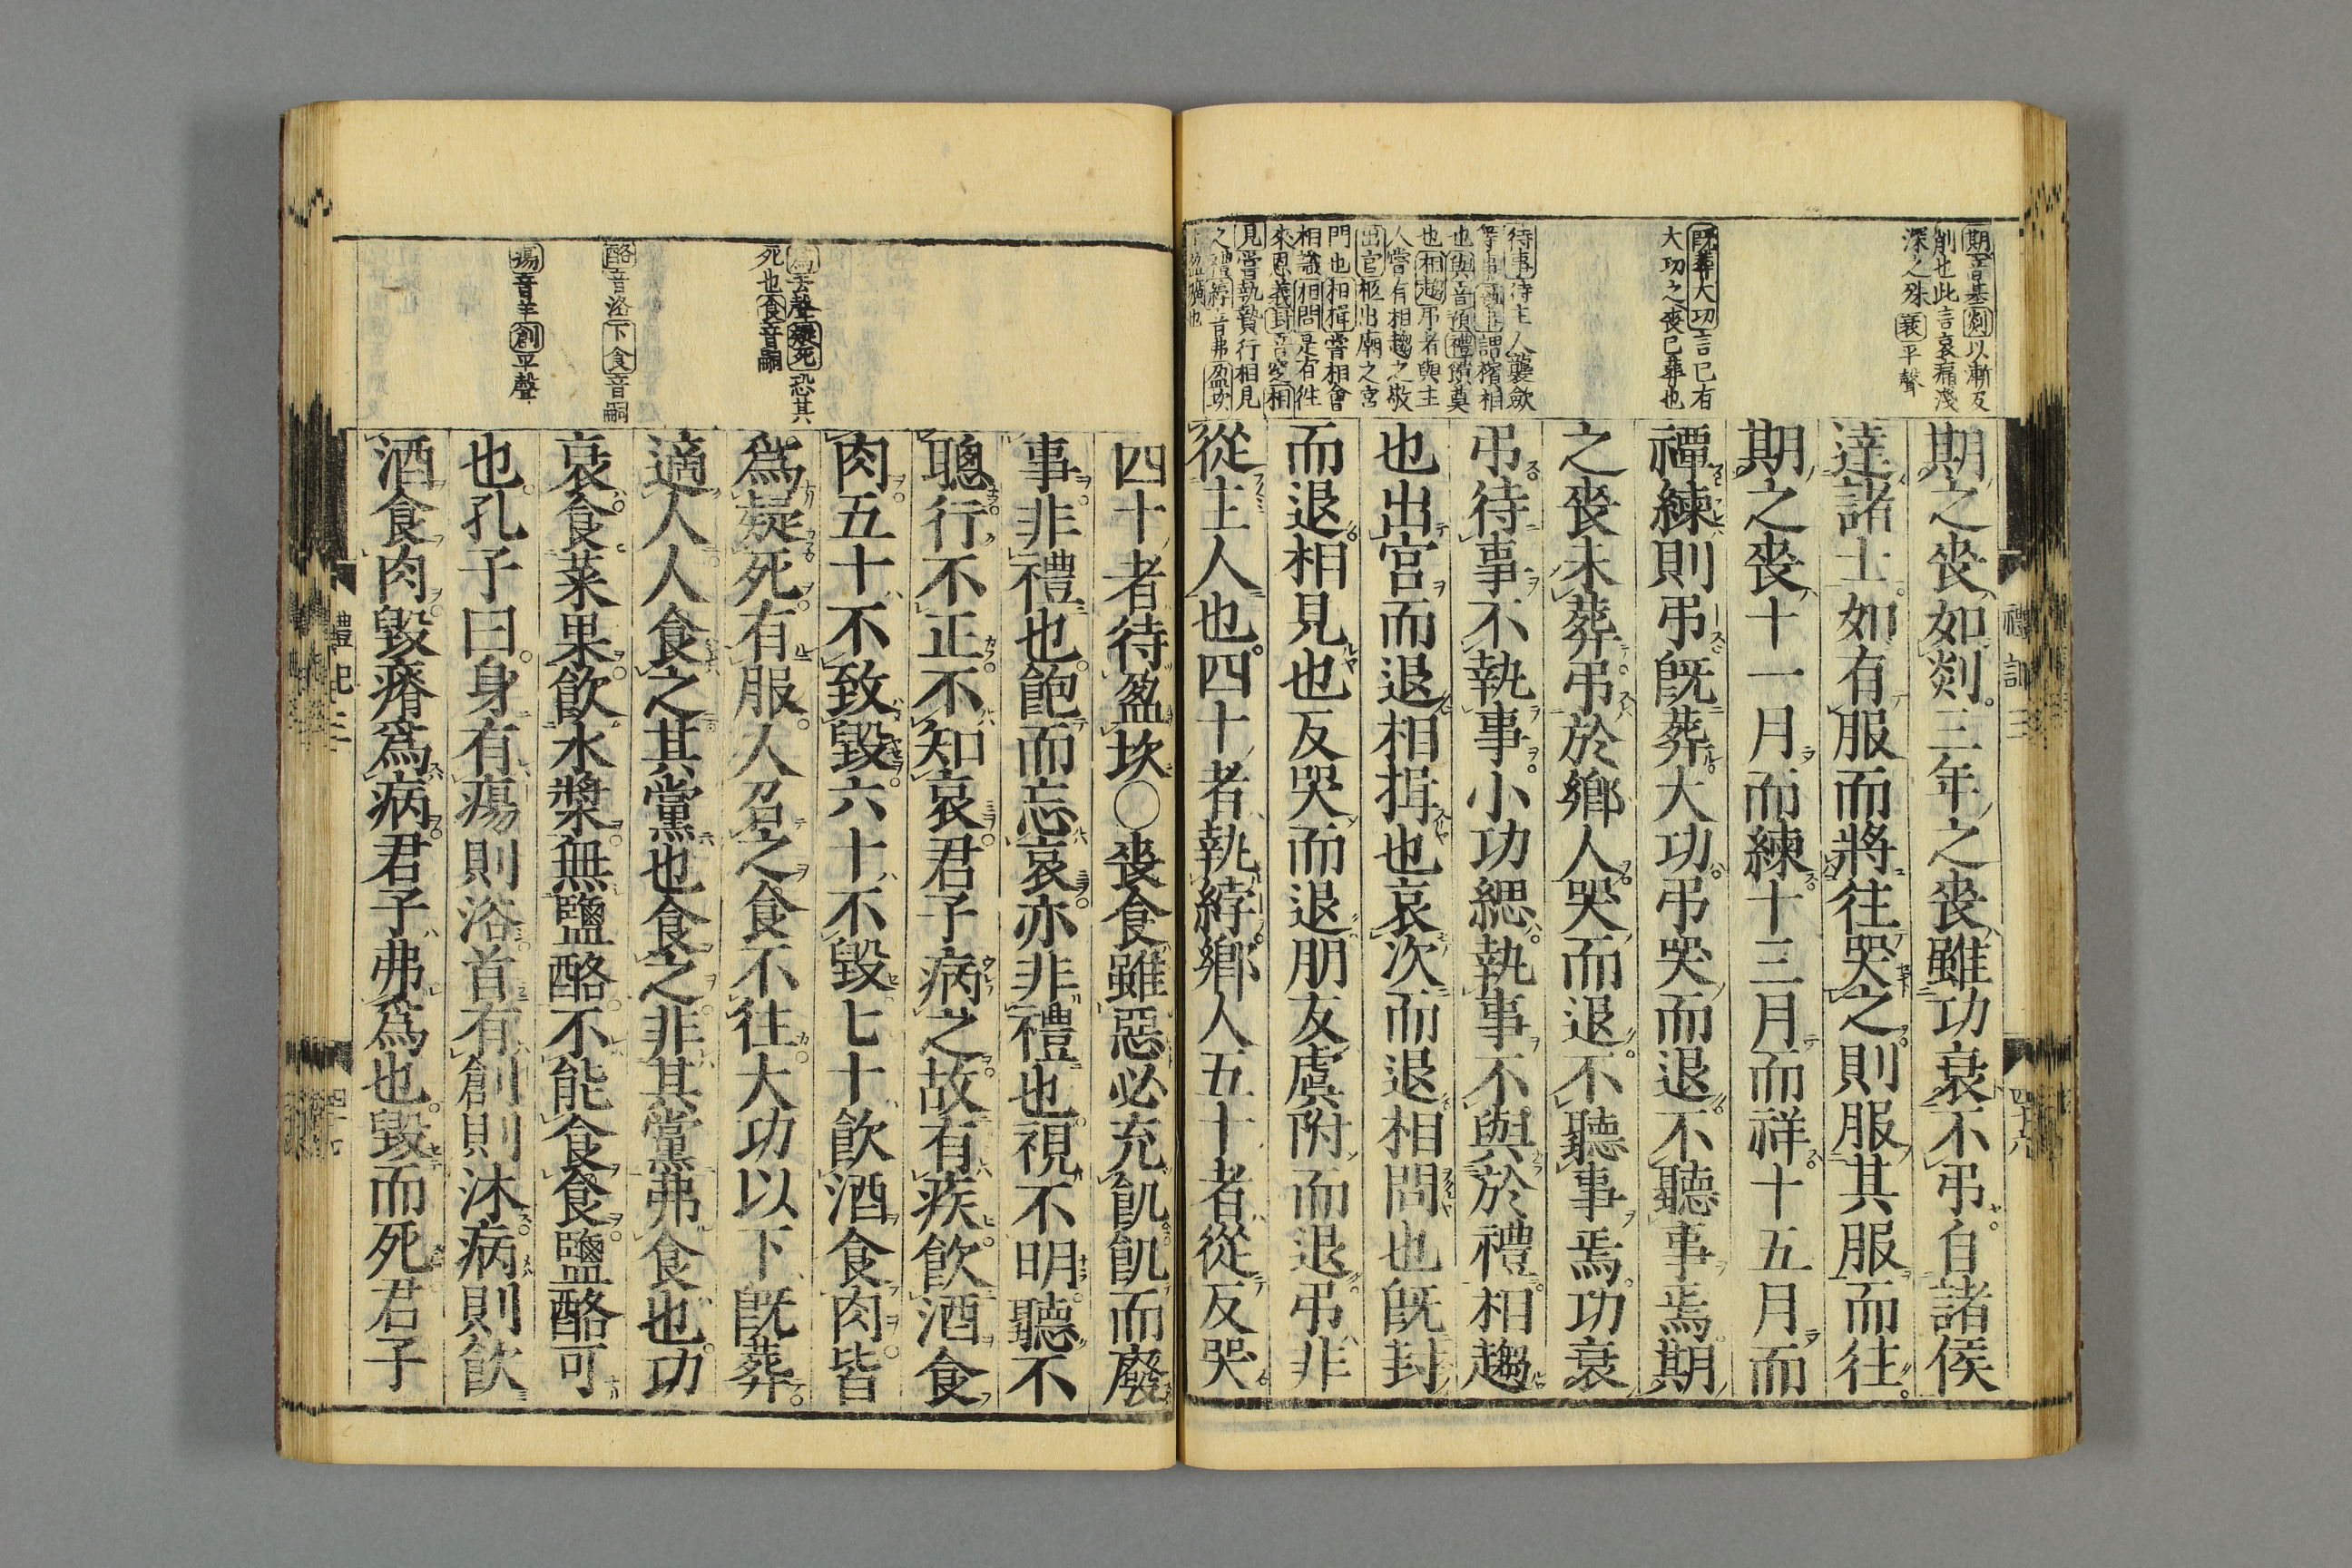 期音基剡以漸及
削也此言哀痛淺
深之殊衰平聲
既葬大功言已有
大功之喪已葬也
待事待主人襲斂
等事執事謂擯相
也與音預禮饋奠
也相趨弔者與主
人嘗有相趨之敬
出宮柩出廟之宮
門也相揖嘗相會
相識相問是有往
來恩義封音窆相
見嘗執贄行相見
之禮綍音弗盈坎
期之喪如剡三年之喪雖功衰不弔自諸侯
達諸士如有服而將往哭之則服其服而往
期之喪十一月而練十三月而祥十五月而
禫練則弔既葬大功弔哭而退不聽事焉期
之喪未葬弔於鄉人哭而退不聽事焉功衰
弔待事不執事小功緦執事不與於禮相趨
也出宮而退相揖也哀次而退相問也既封
而退相見也反哭而退朋友虞附而退弔非
從主人也四十者執綍鄉人五十者從反哭
禮記三
四十六
爲去聲疑死恐其
死也食音嗣
酪音洛下食音嗣
瘍音羊創平聲
四十者待盈坎〇喪食雖惡必充飢飢而廢
事非禮也飽而忘哀亦非禮也視不明聽不
聰行不正不知哀君子病之故有疾飲酒食
肉五十不致毀六十不毀七十飲酒食肉皆
爲疑死有服人召之食不往大功以下既葬
適人人食之其黨也食之非其黨弗食也功
衰食菜果飲水漿無鹽酪不能食食鹽酪可
也孔子曰身有瘍則浴首有創則沐病則飲
酒食肉毀瘠爲病君子弗爲也毀而死君子
禮記三
四十七